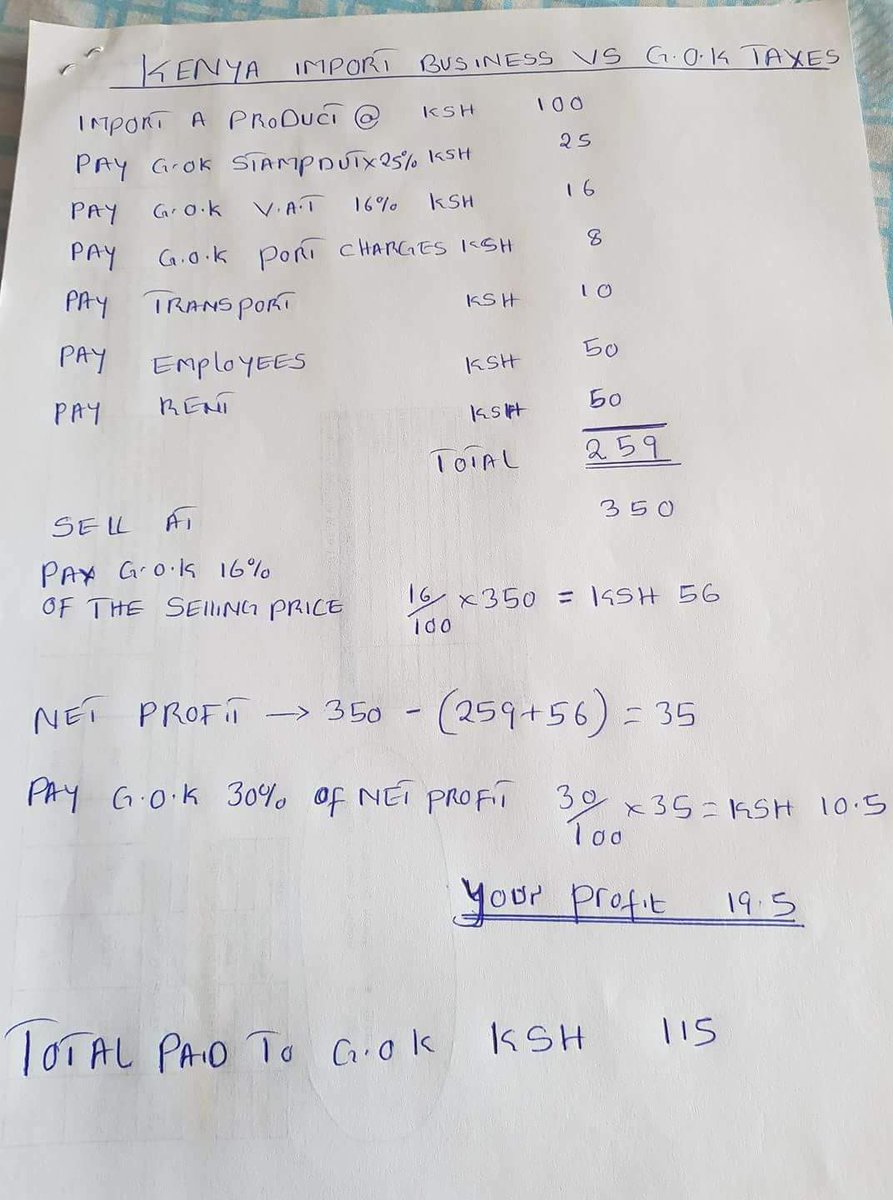 KENYA IMPORT BUSINESS VS G.O.K TAXES
IMPORT A PRODUCT @ KSH 100
PAY G.OK STAMPDUTX25% KSH 25
PAY G.O.K V.A.T 16% KSH 16
PAY G.O.K PORT CHARGES KSH 8
PAY TRANSPORT KSH 10
PAY EMPLOYEES KSH 50
PAY RENT KSH 50
TOTAL 259
SELL AT 350
PAY G.O.K 16%
OF THE SELLING PRICE 16/100 x350 = KSH 56
NET PROFIT → 350 - (259+56) = 35
PAY G.O.K 30% OF NET PROFIT 30/100 x35 = KSH 10.5
Your Profit 19.5
TOTAL PAID TO G.O.K KSH 115